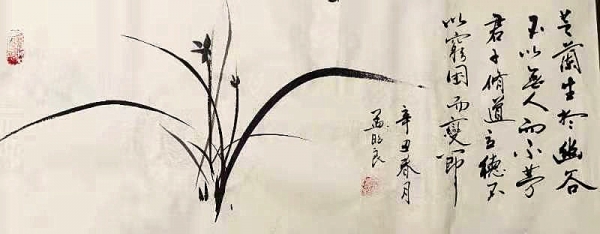 芝蘭生於幽谷
不以無人而不芳
君子脩道立德不
以窮困而變節
辛丑春月